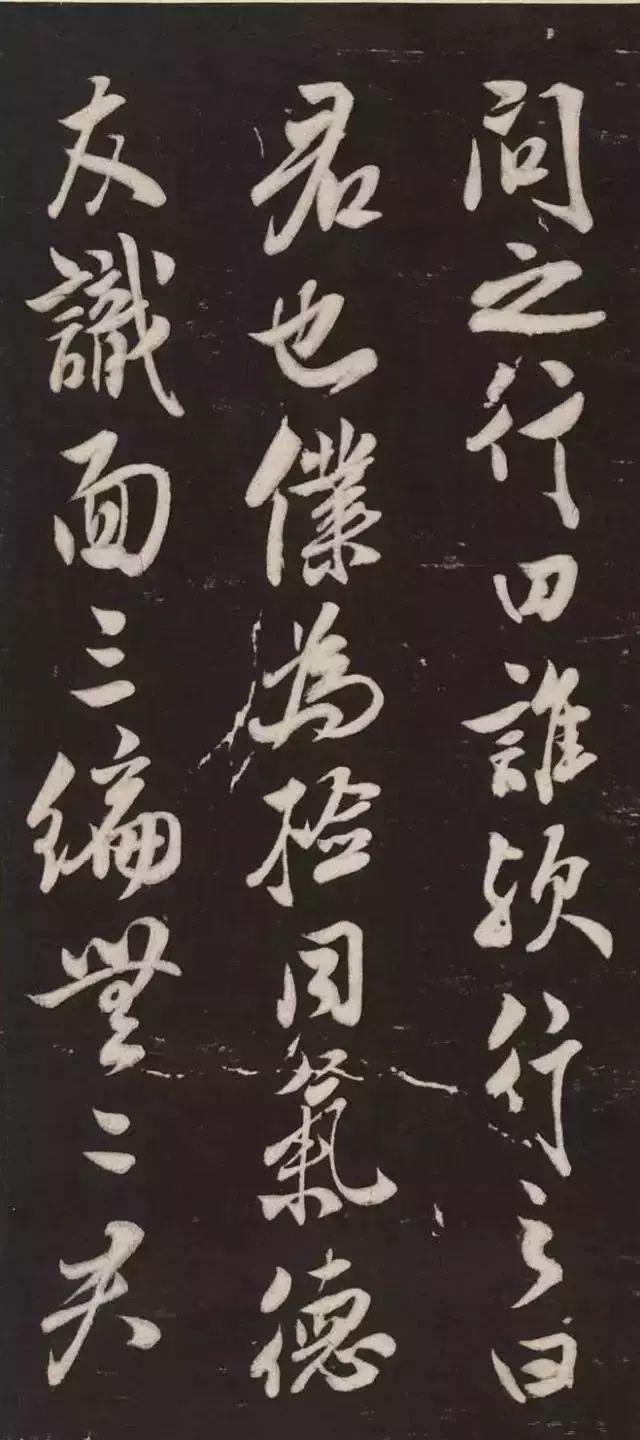 問之行曰誰欤行之曰
君也僕為同氣德
友識面三編無二夫